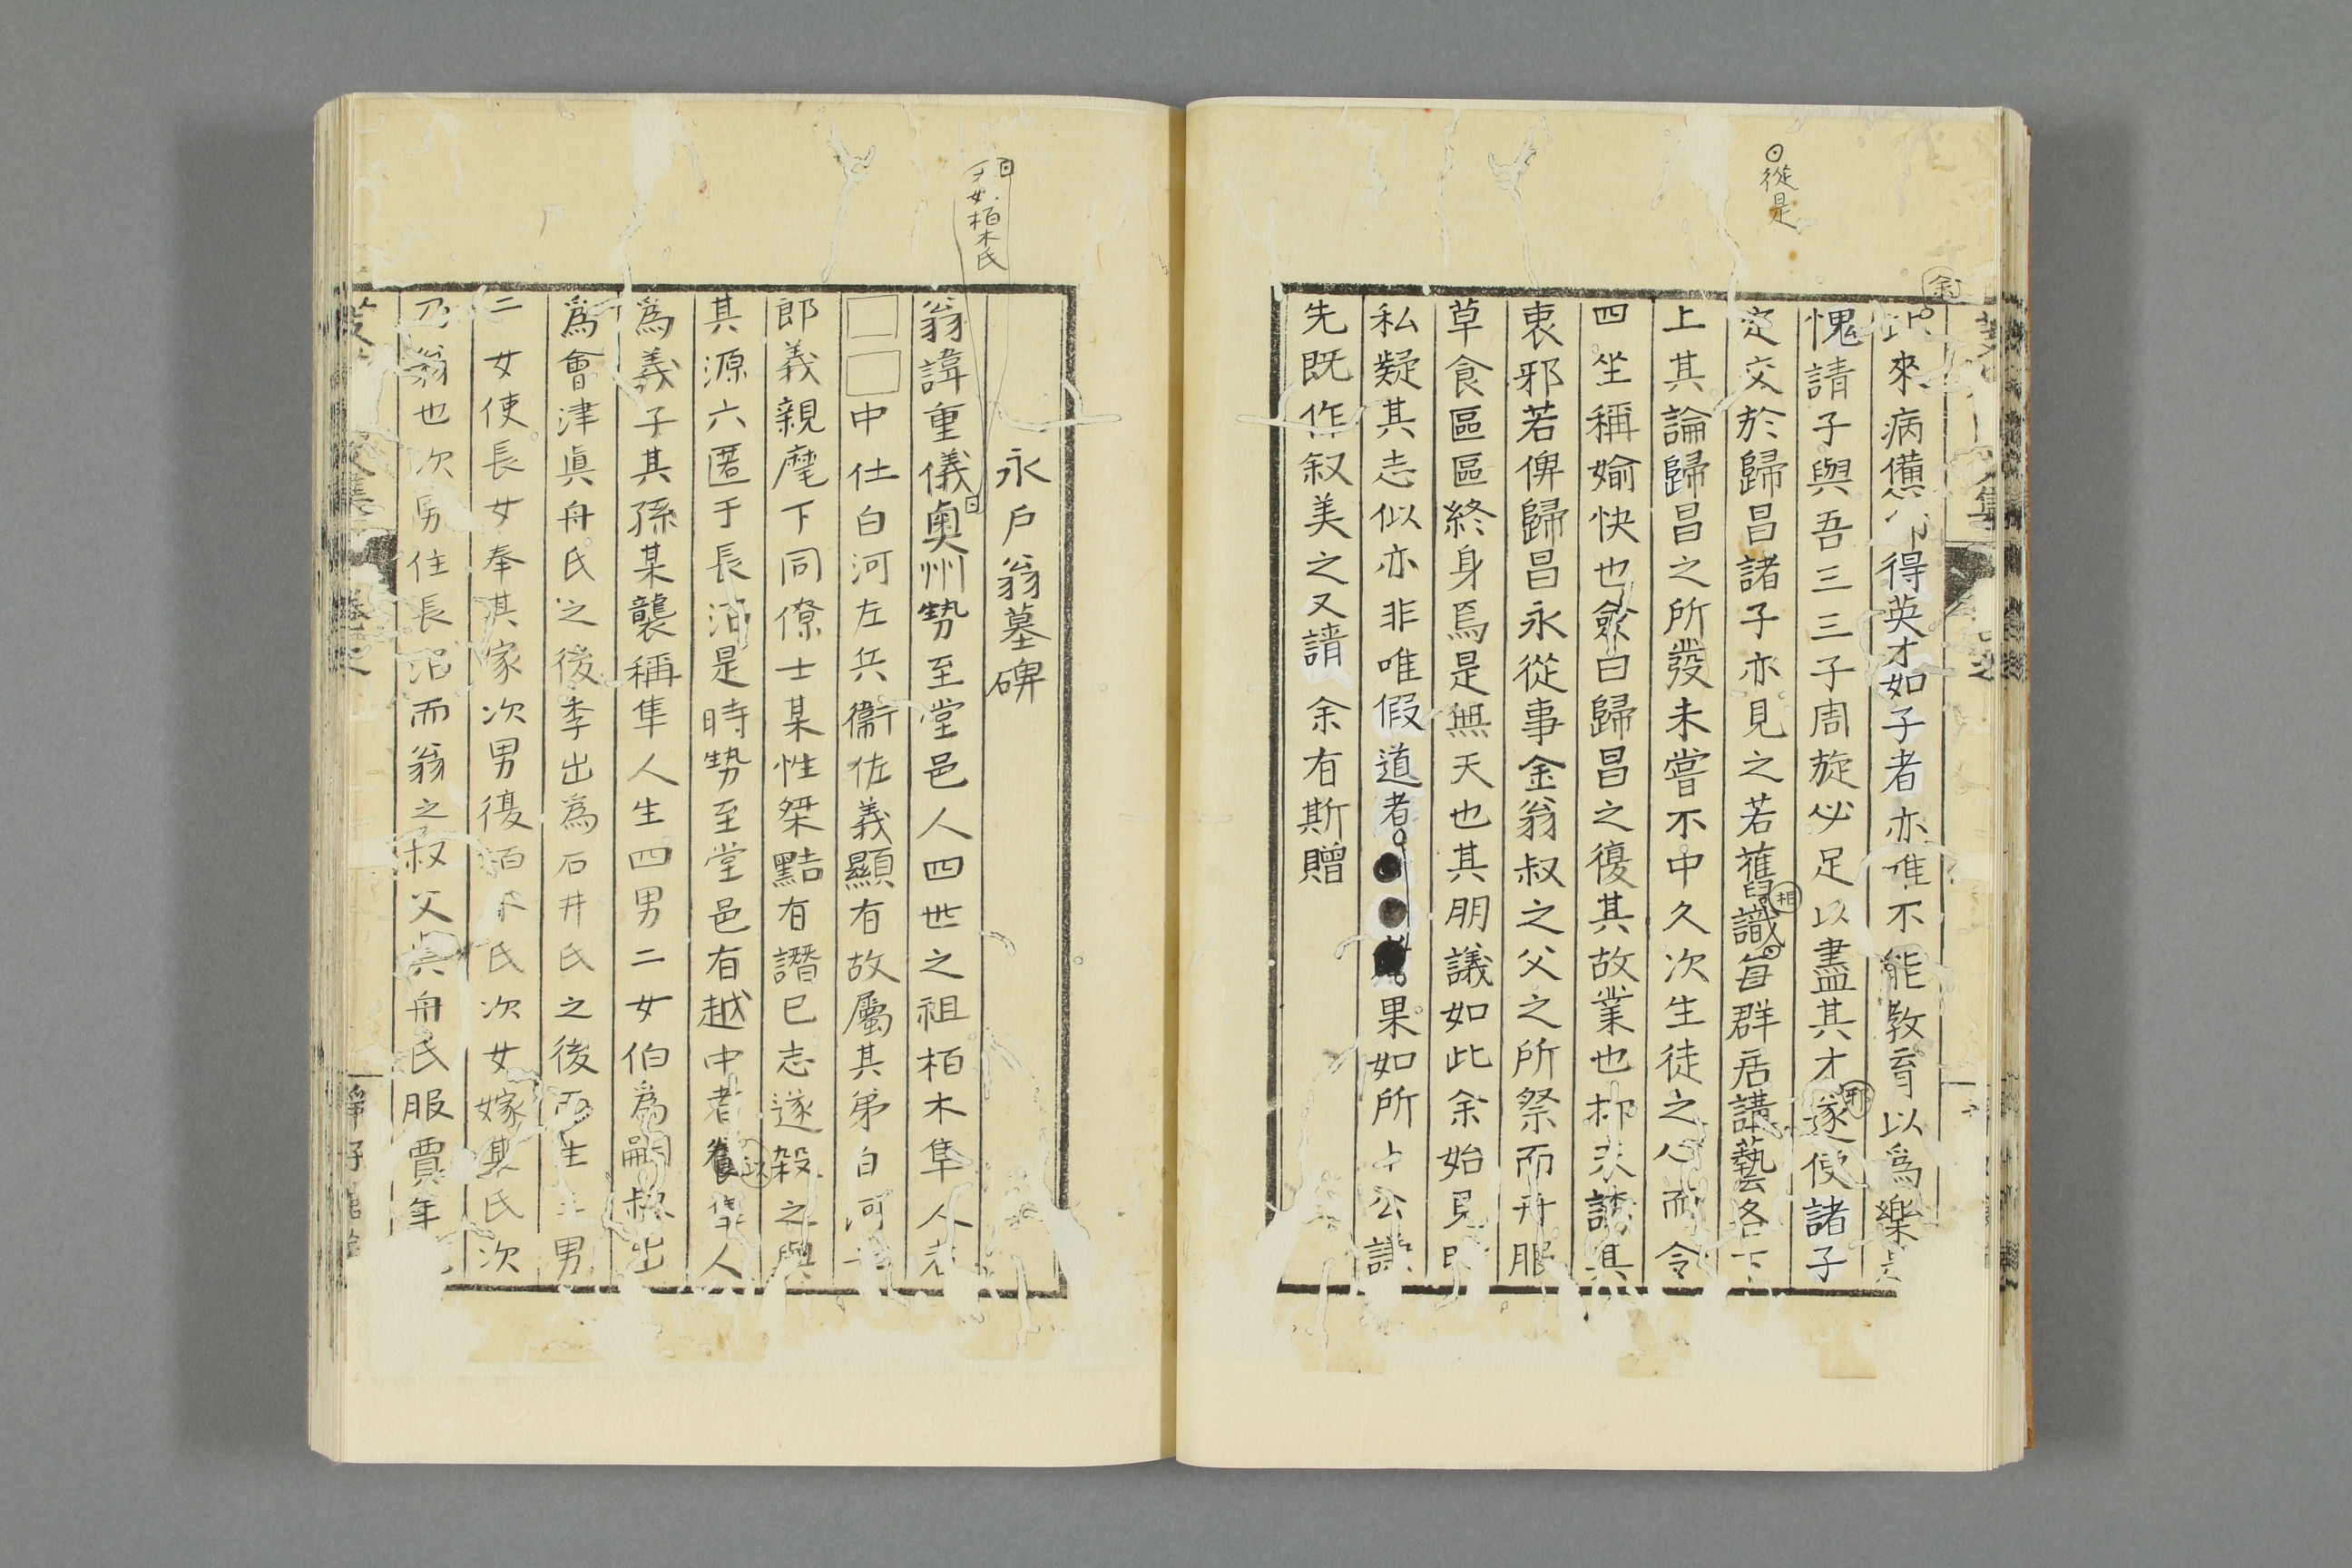 從是
余
來病憊得英才如子者亦唯不能教育以爲樂
愧請子與吾三三子周旋必足以盡其才遂使諸子
邪
定交於歸昌諸子亦見之若舊識每群居講藝各下
相
上其論歸昌之所發未嘗不中久次生徒之心而令
四坐稱媮快也僉曰歸昌之復其故業也
衷邪若俾歸昌永從事金翁叔之父之所祭而冉服
草食區區終身焉是無天也其朋議如此余始
私疑其志似亦非唯假道者果如所公
先既作叙美之又請余有斯贈
才女栢木氏
永戸翁墓碑
翁諱重儀奥州㔟至堂邑人四世之祖栢木隼人
□□中仕白河左兵衞佐義顯有故屬其弟白河
郎義親麾下同僚士某性桀黠有譖已志遂殺之與
其源六匿于長沼是時㔟至堂邑有越中者隼人
爲義子其孫某襲稱隼人生四男二女伯爲嗣叔出
爲會津眞舟氏之後季出爲石井氏之後而生三男
二女使長女奉其家次男復栢木氏次女嫁某氏次
乃翁也次男住長沼而翁之叔父眞舟氏服賈年